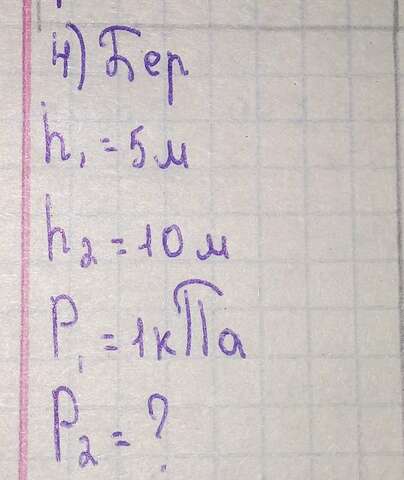 4) Бер
h₁ = 5 м
h₂ = 10 м
P₁ = 1 кПа
P₂ = ?